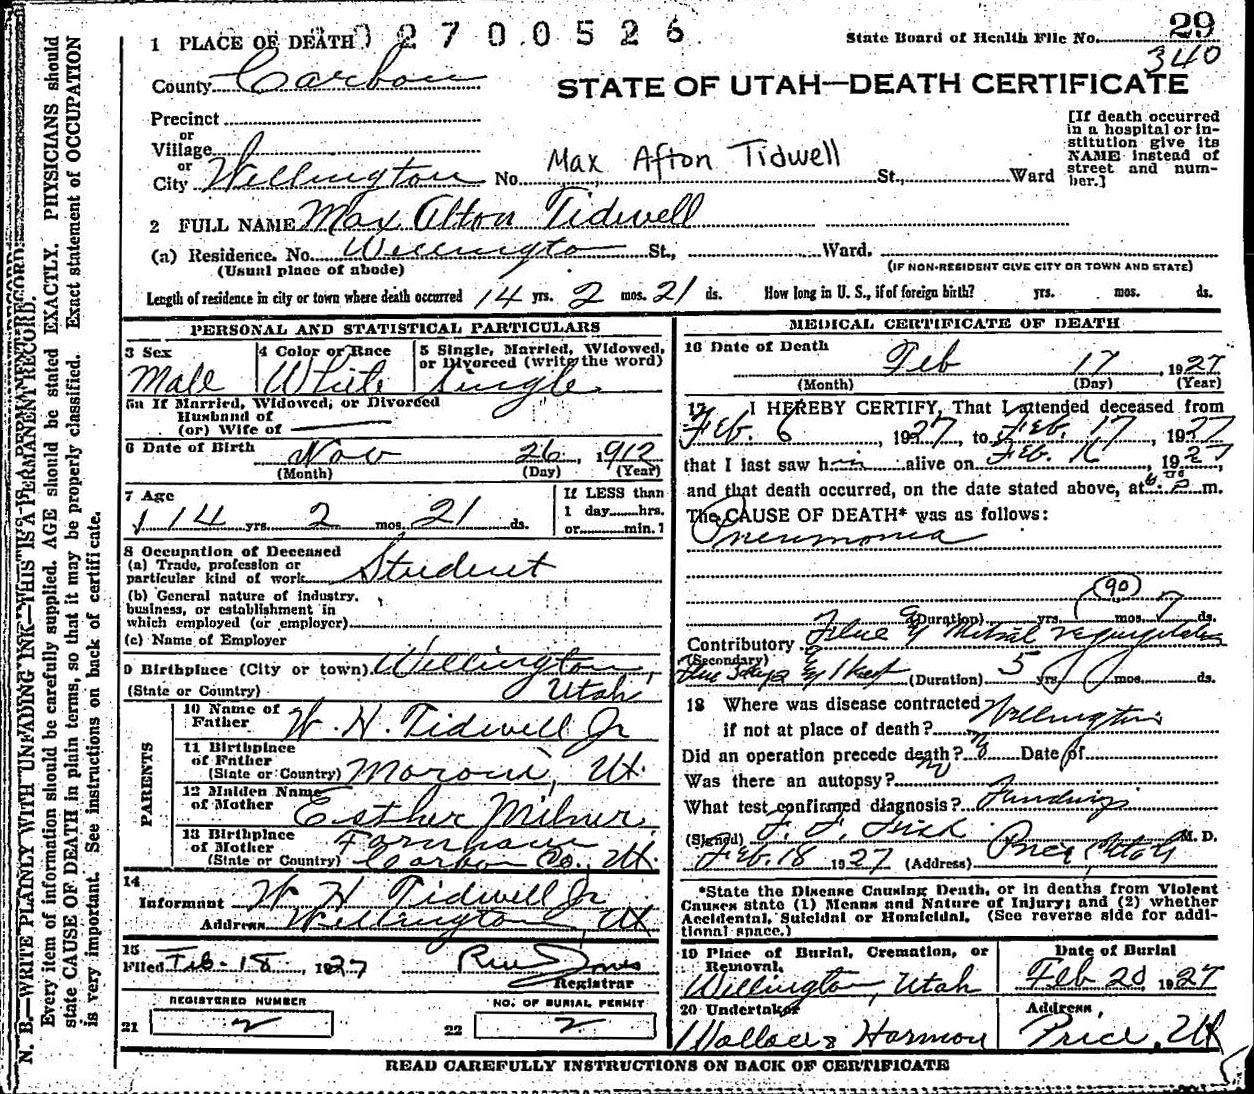 1 PLACE OF DEATH 0 2 7 0 0 5 2 6
State Board of Health File No. 29
340
County Carbon
STATE OF UTAH—DEATH CERTIFICATE
Precinct
or
Village
or
City Wellington No. Max Afton Tidwell St., Ward
[If death occurred in a hospital or institution give its NAME instead of street and number.]
2 FULL NAME Max Alton Tidwell
(a) Residence. No. Wellington St., Ward.
(Usual place of abode) (IF NON-RESIDENT GIVE CITY OR TOWN AND STATE)
Length of residence in city or town where death occurred 14 yrs. 2 mos. 21 ds. How long in U. S., if of foreign birth? yrs. mos. ds.
PERSONAL AND STATISTICAL PARTICULARS
3 Sex Male
4 Color or Race White
5 Single, Married, Widowed, or Divorced (write the word) Single
5a If Married, Widowed, or Divorced
Husband of
(or) Wife of
6 Date of Birth Nov 26, 1912
(Month) (Day) (Year)
7 Age 14 yrs. 2 mos. 21 ds.
If LESS than
1 day hrs.
or min.?
8 Occupation of Deceased
(a) Trade, profession or
particular kind of work Student
(b) General nature of industry,
business, or establishment in
which employed (or employer)
(c) Name of Employer
9 Birthplace (City or town) Wellington,
(State or Country) Utah
PARENTS
10 Name of Father W. H. Tidwell Jr
11 Birthplace of Father
(State or Country) Moroni, Ut.
12 Maiden Name of Mother Esther Milner
13 Birthplace of Mother Farnham
(State or Country) Carbon Co., Ut.
14
Informant W H Tidwell Jr
Address Wellington, Ut
15
Filed Feb-18, 1927
Registrar
REGISTERED NUMBER
21 2
NO. OF BURIAL PERMIT
22 2
MEDICAL CERTIFICATE OF DEATH
16 Date of Death Feb 17, 1927
(Month) (Day) (Year)
17 I HEREBY CERTIFY, That I attended deceased from
Feb. 6, 1927, to Feb. 17, 1927
that I last saw him alive on Feb. 16, 1927,
and that death occurred, on the date stated above, at m.
The CAUSE OF DEATH* was as follows:
Pneumonia
90
(Duration) yrs. mos. 7 ds.
Contributory Mitral regurgitation
(Secondary) (Duration) 5 yrs. mos. ds.
18 Where was disease contracted
if not at place of death? Wellington
Did an operation precede death? No Date of
Was there an autopsy? No
What test confirmed diagnosis? Findings
(Signed) M. D.
Feb. 18 1927 (Address) Price, Utah
*State the Disease Causing Death, or in deaths from Violent
Causes state (1) Means and Nature of Injury; and (2) whether
Accidental, Suicidal or Homicidal. (See reverse side for addi-
tional space.)
19 Place of Burial, Cremation, or Removal,
Wellington, Utah
Date of Burial
Feb 20, 1927
20 Undertaker
Wallace & Harmon
Address,
Price, Ut
READ CAREFULLY INSTRUCTIONS ON BACK OF CERTIFICATE
N. B.—WRITE PLAINLY WITH UNFADING INK—THIS IS A PERMANENT RECORD.
Every item of information should be carefully supplied. AGE should be stated EXACTLY. PHYSICIANS should
state CAUSE OF DEATH in plain terms, so that it may be properly classified. Exact statement of OCCUPATION
is very important. See instructions on back of certificate.